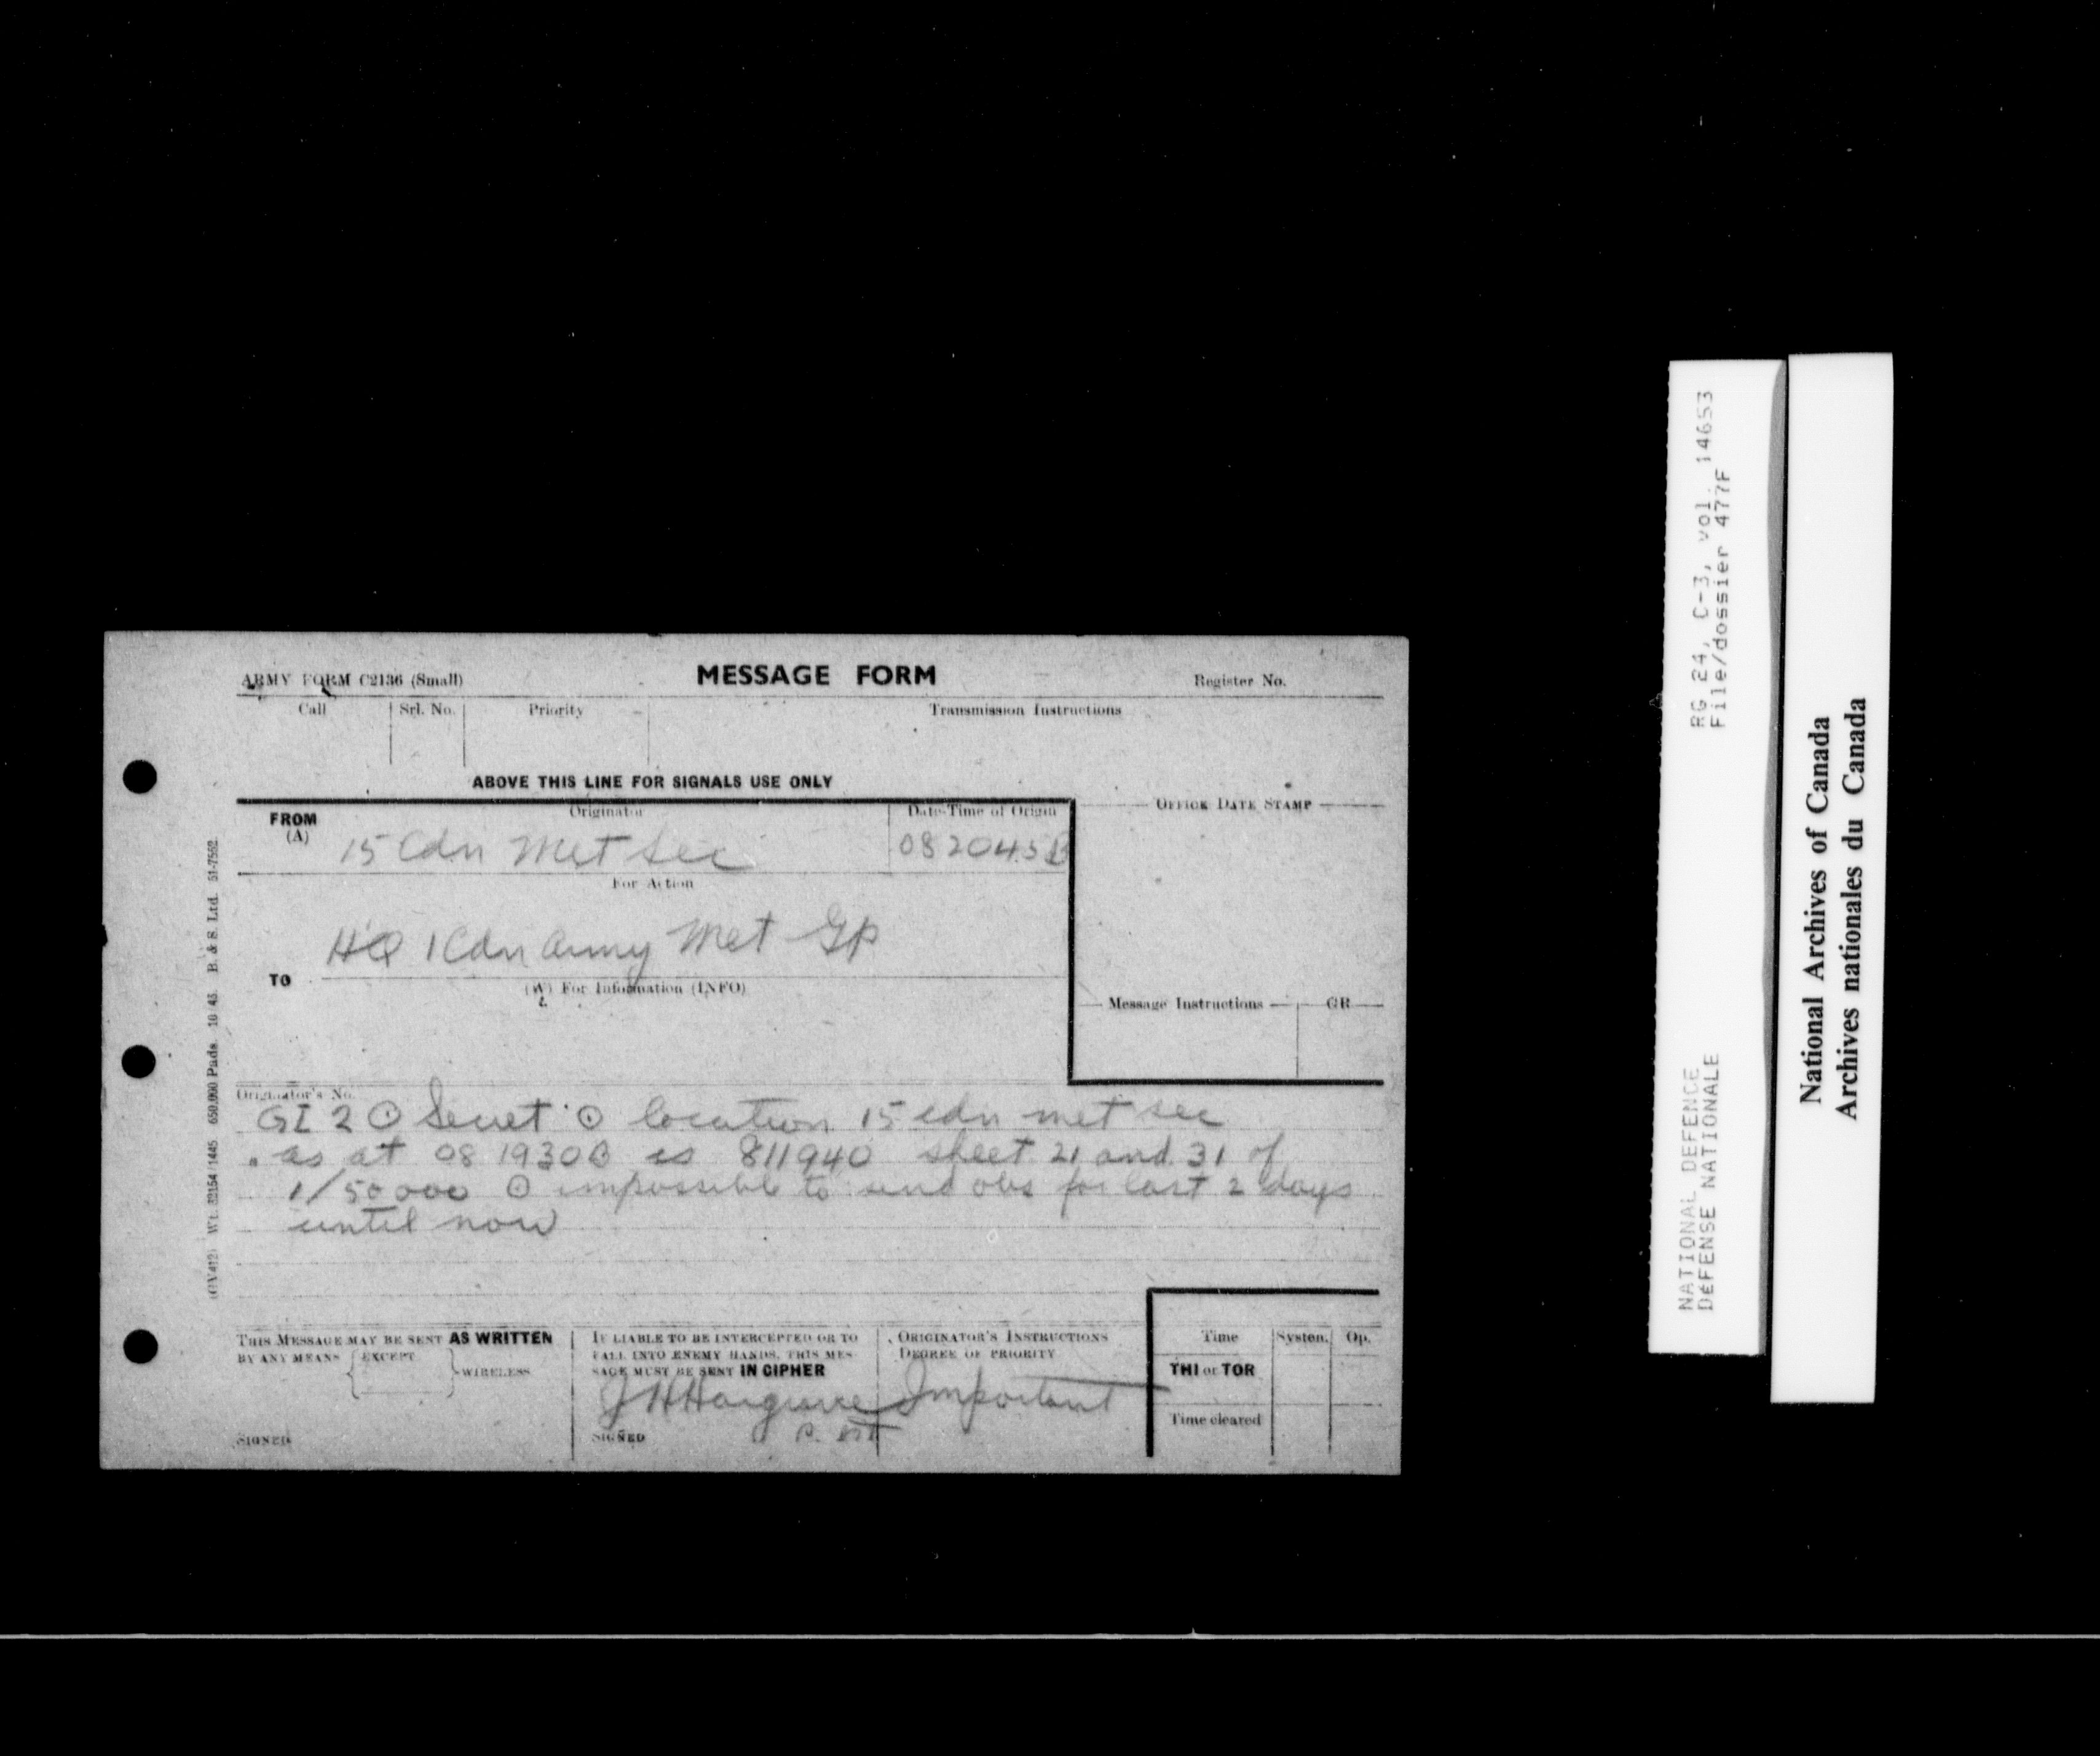 ARMY FORM C2136 (Small)
MESSAGE FORM
Register No.
Call Srl. No. Priority Transmission Instructions
ABOVE THIS LINE FOR SIGNALS USE ONLY
FROM (A)
Originator
15 Cdn Met Sec
Date-Time of Origin
082045B
OFFICE DATE STAMP
For Action
HQ 1 Cdn Army Met Gp
TO
(W) For Information (INFO)
Message Instructions GR
Originator's No.
GI 2 ⊙ Secret ⊙ location 15 cdn met sec
as at 08 1930B is 811940 sheet 21 and 31 of
1/50000 ⊙ impossible to send obs for last 2 days
until now
THIS MESSAGE MAY BE SENT AS WRITTEN
BY ANY MEANS { EXCEPT } WIRELESS
SIGNED
IF LIABLE TO BE INTERCEPTED OR TO
FALL INTO ENEMY HANDS, THIS MES-
SAGE MUST BE SENT IN CIPHER
J H Hargrave
SIGNED
ORIGINATOR'S INSTRUCTIONS
DEGREE OF PRIORITY
Important
Time System. Op.
THI or TOR
Time cleared
Wt. 32154/1445 650,000 Pads 10 43 B. & S. Ltd. 51-7562
NATIONAL DEFENCE RG 24, C-3, vol. 14653
DEFENSE NATIONALE File/dossier 477F
National Archives of Canada
Archives nationales du Canada